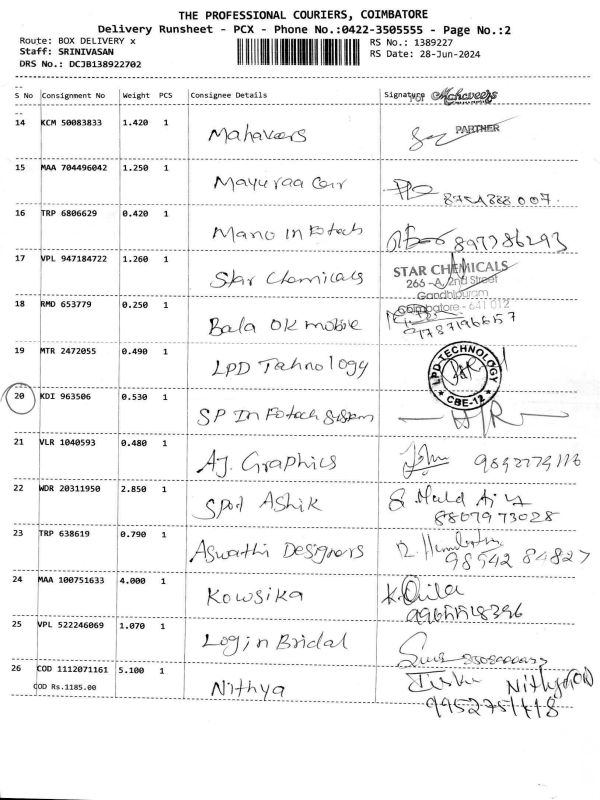 THE PROFESSIONAL COURIERS, COIMBATORE
Delivery Runsheet - PCX - Phone No.:0422-3505555 - Page No.:2
Route: BOX DELIVERY x
RS No.: 1389227
Staff: SRINIVASAN
RS Date: 28-Jun-2024
DRS No.: DCJB138922702
S No Consignment No Weight PCS Consignee Details Signature
For Mahaveers
14 KCM 50083833 1.420 1 Mahaveers
PARTNER
15 MAA 704496042 1.250 1 Mayuraa Car
16 TRP 6806629 0.420 1 Mano Infotech
897386293
17 VPL 947184722 1.260 1 Star Chemicals
STAR CHEMICALS
266-A, 2nd Street
Gandhipuram
Coimbatore - 641 012
18 RMD 653779 0.250 1 Bala OK mobile
19 MTR 2472055 0.490 1 LPD Tahnology
LPD TECHNOLOGY
CBE-12
20 KDI 963506 0.530 1 SP Infotech System
21 VLR 1040593 0.480 1 AJ. Graphics
John
22 WDR 20311950 2.850 1 Spot Ashik
8807973028
23 TRP 638619 0.790 1 Aswathi Designers
98542 84827
24 MAA 100751633 4.000 1 Kowsika
25 VPL 522246069 1.070 1 Login Bridal
26 COD 1112071161 5.100 1 Nithya
COD Rs.1185.00